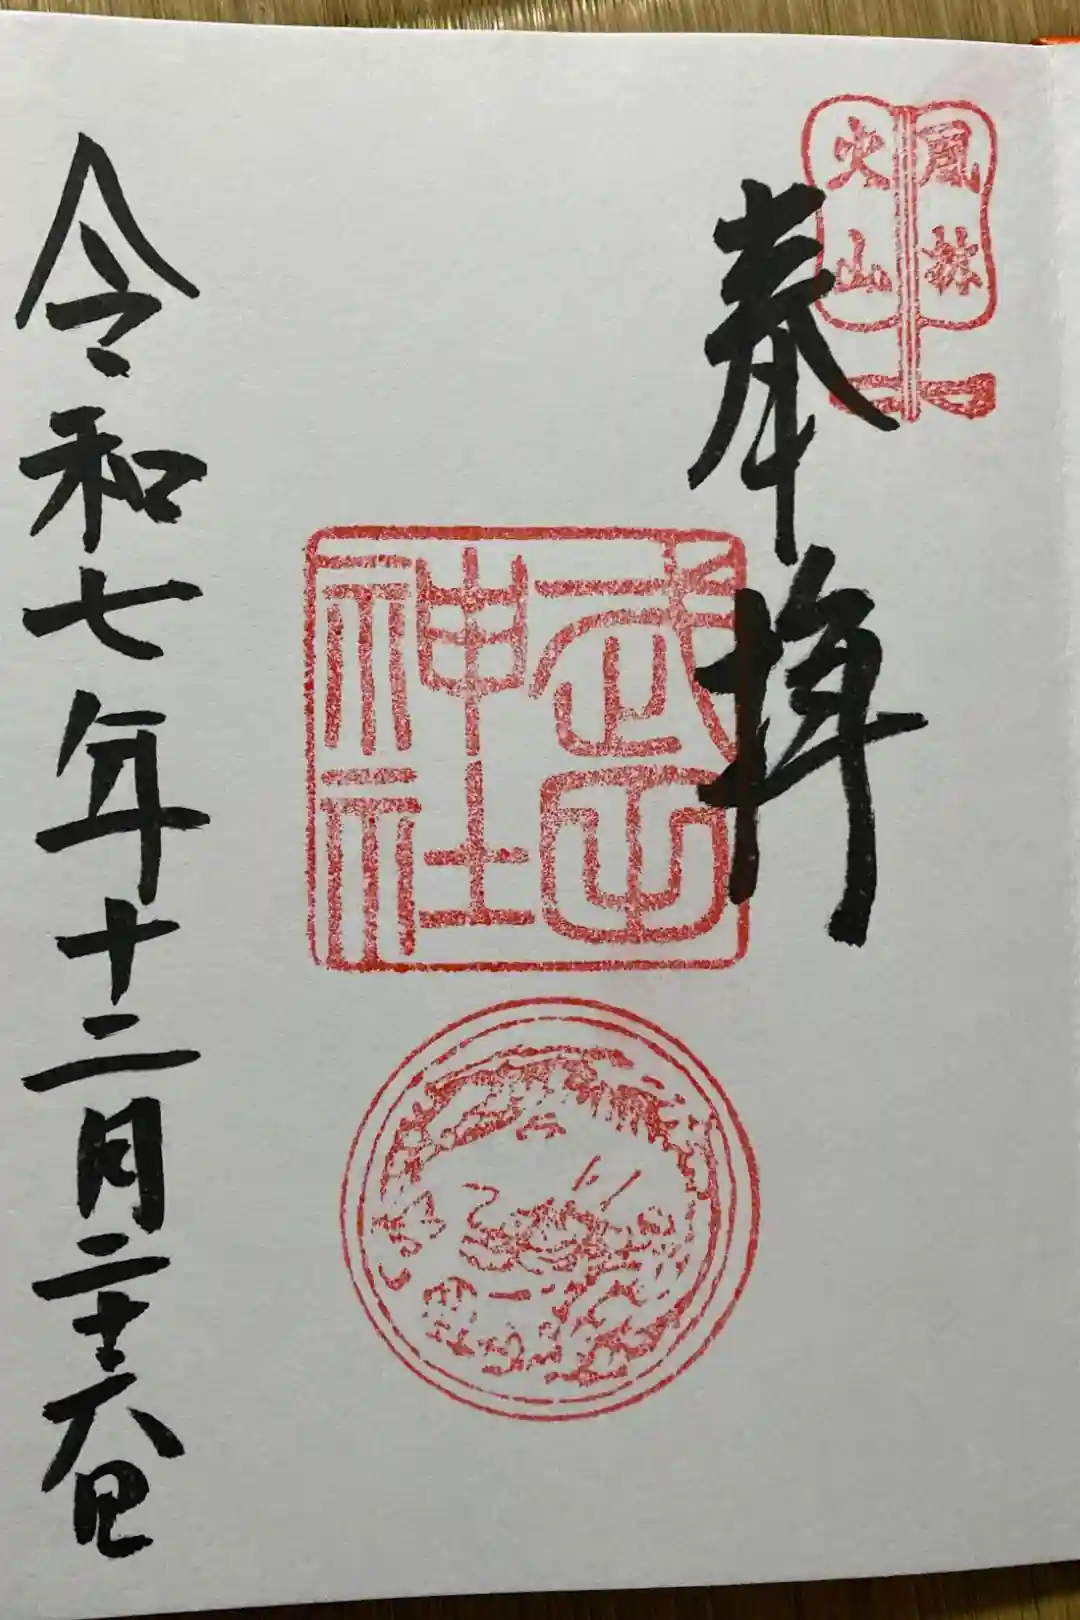 風林
火山
奉拝
武田
神社
令和七年十二月二十六日